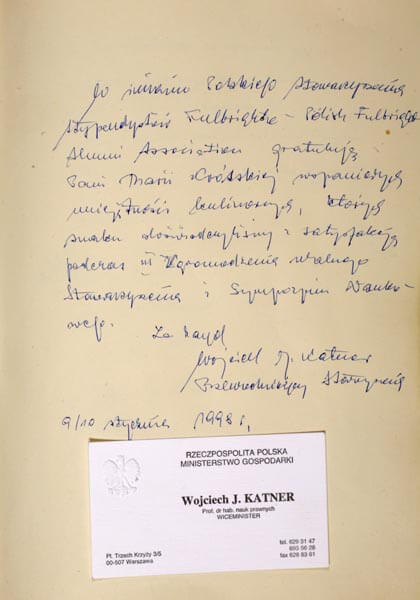 W imieniu Polskiego Stowarzyszenia
Stypendystów Fulbrighta – Polish Fulbright
Alumni Association gratuluję
Pani Marii wspaniałych
umiejętności kulinarnych, których
smaku doświadczyliśmy z satysfakcją
podczas III Zgromadzenia Walnego
Stowarzyszenia i Sympozjum Nauko-
wego.
Za Zarząd
Wojciech J. Katner
Przewodniczący Stowarzyszenia
9/10 stycznia 1998 r.
RZECZPOSPOLITA POLSKA
MINISTERSTWO GOSPODARKI
Wojciech J. KATNER
Prof. dr hab. nauk prawnych
WICEMINISTER
Pl. Trzech Krzyży 3/5
00-507 Warszawa
tel. 629 31 47
693 56 28
fax 628 83 61